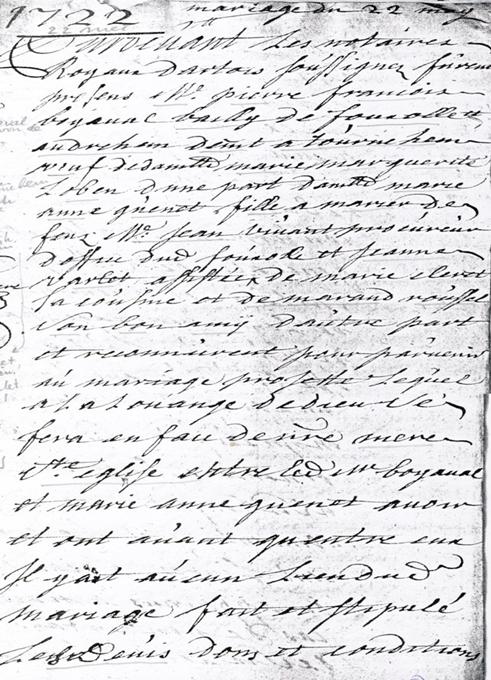 1722 mariage du 22 may
Pardevant Les notaires
Royaux dartois soussignez furent
presens Mr. pierre francois
boyaval bailly de foucolle et
audrehem demt a tournehem
veuf de damlle marie marguerite
Loben dune part damlle marie
anne quenot fille a marier de
feu Mr. Jean vivant procureur
doffice dud fouxolle et Jeanne
varlot assistée de marie cleret
sa cousine et de marand roussel
son bon amy d'autre part
et reconnurent pour parvenir
au mariage projetté Lequel
a La Louange de dieu se
fera en face de nre mere
Ste eglise entre Led Mr boyaval
et marie anne quenot avoir
et ont avant qu'entre eux
Il y ait aucun Lien dud
mariage fait et stipulé
Les devis dons et conditions